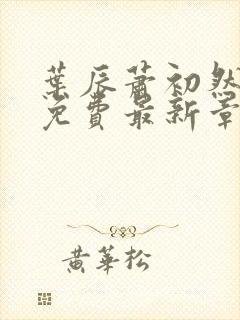 葉辰蕭初然
免費最新章
黃華松